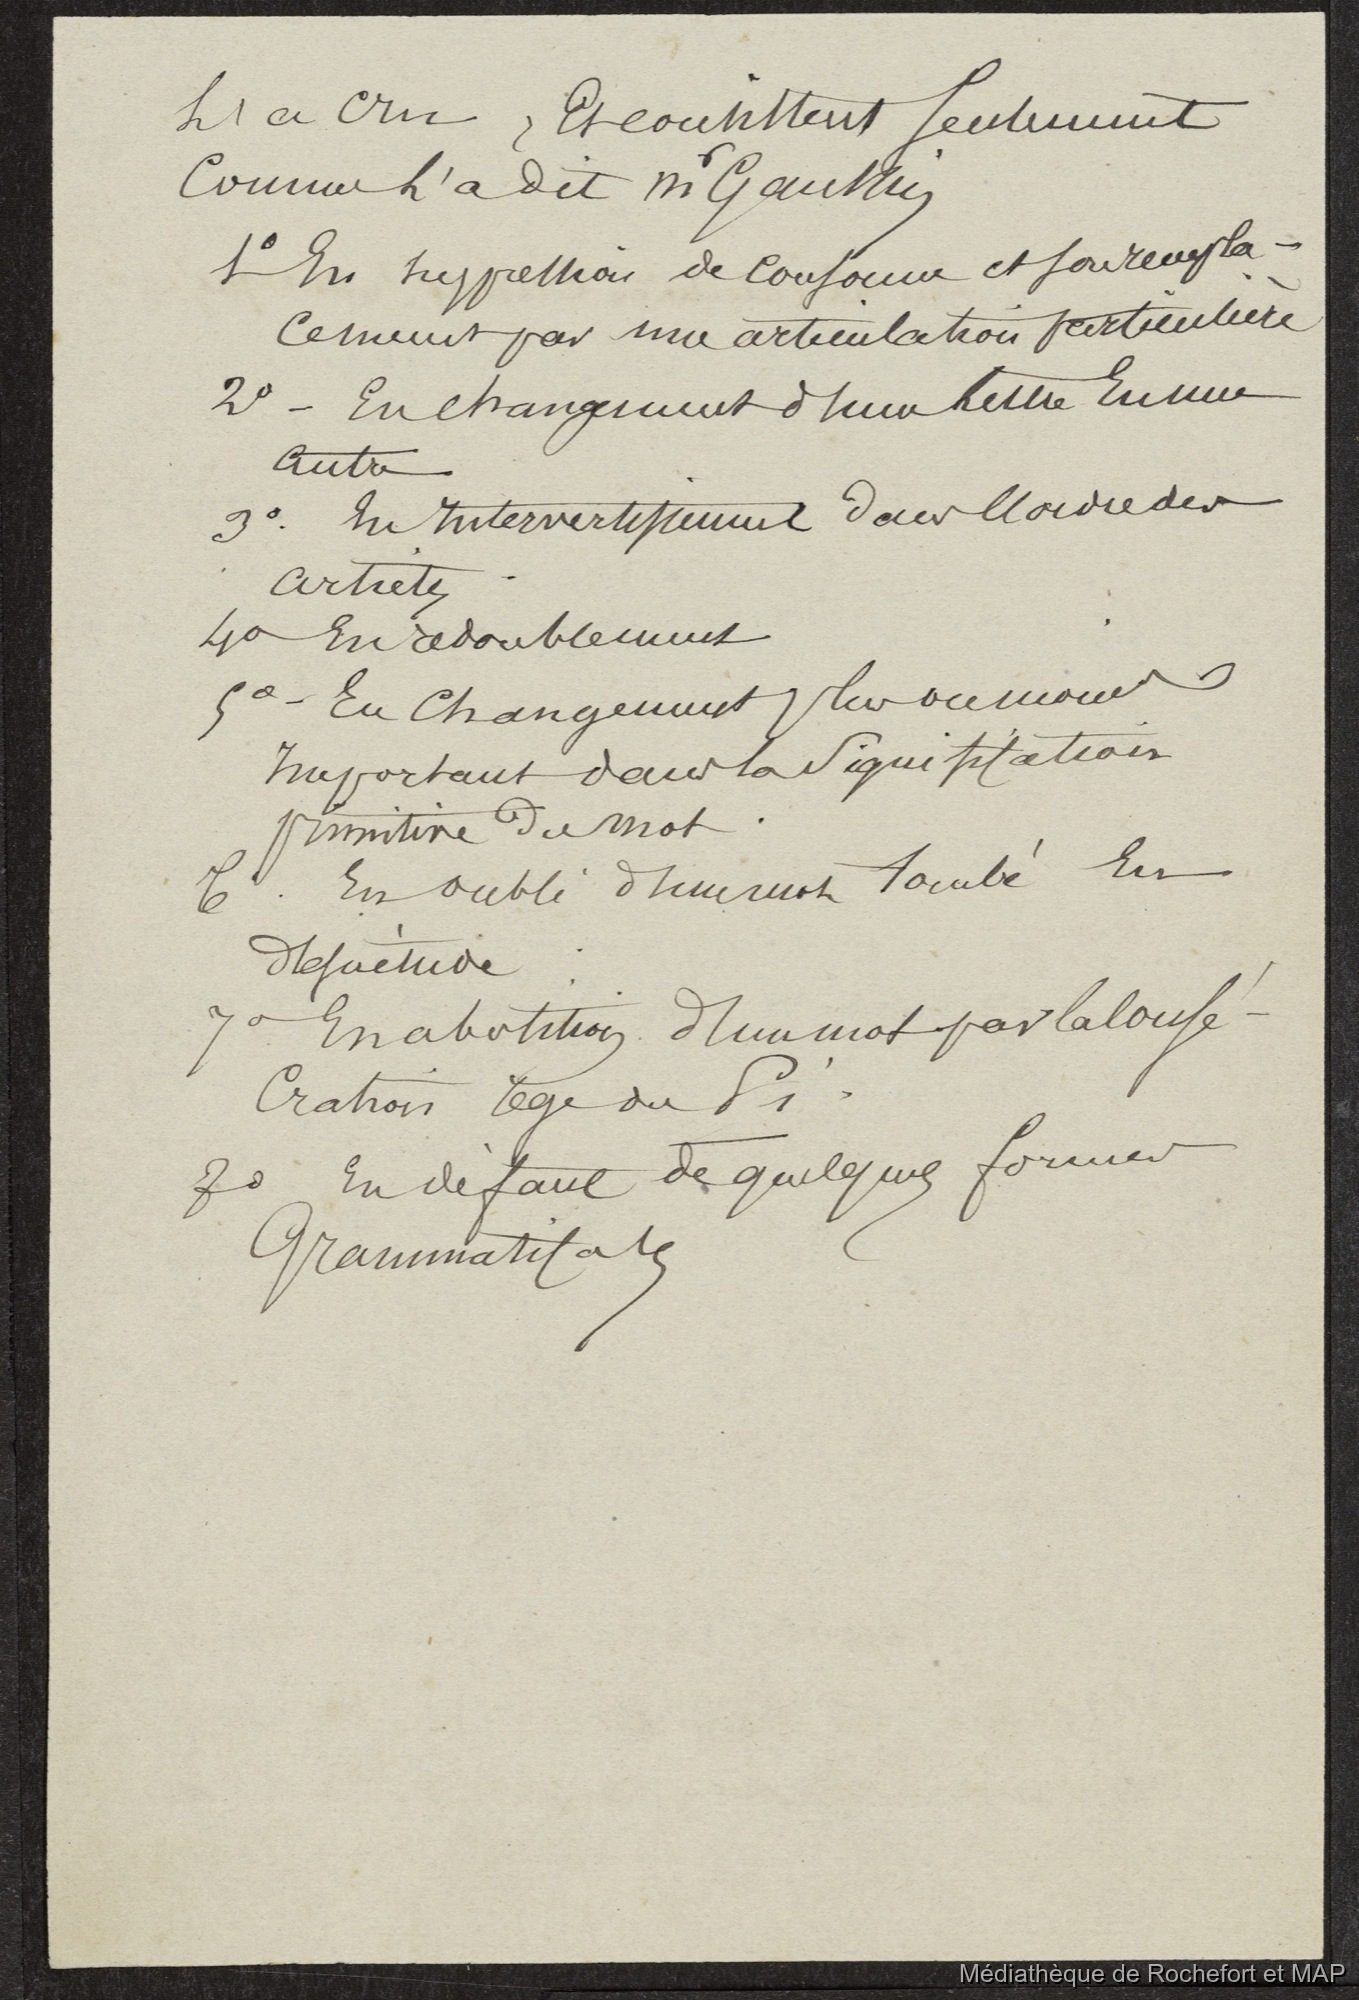 l'a cru, Et consistent seulement
Comme l'a dit Mr Gaussin
1° En suppression de consonne et son rempla-
cement par une articulation particulière
2° - En changement d'une lettre En une
autre
3°. En Intervertissement dans l'ordre des
articles.
4° En redoublement
5° - En Changement plus ou moins
Important dans la Signification
primitive du mot.
6°. En oubli d'un mot tombé En
désuétude
7° En abolition d'un mot par la consé-
cration du Pi.
8° En défaut de quelques formes
Grammaticales
Médiathèque de Rochefort et MAP